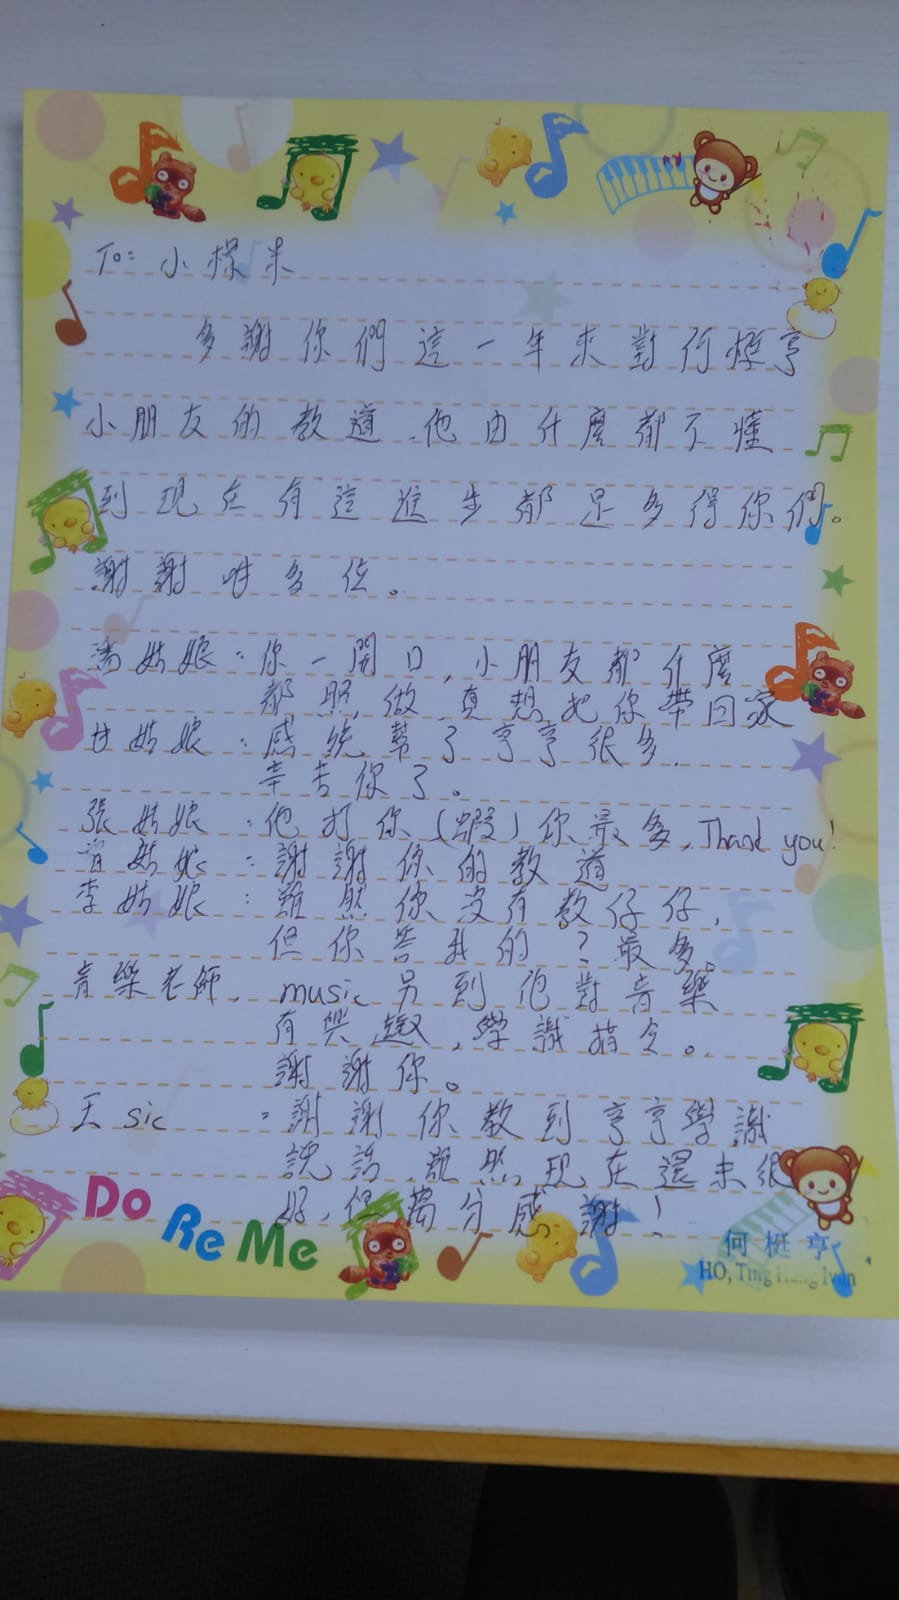 To: 小樑米
多謝你們這一年來對何梃亨
小朋友的教道,他由什麼都不懂
到現在有這進步都是多得你們。
謝謝咁多位。
潘姑娘:你一開口,小朋友都什麼
都照做,真想把你帶回家
甘姑娘:感統幫了亨亨很多.
辛苦你了。
張姑娘:他打你(蝦)你最多,Thank you!
曾姑娘:謝謝你的教道
李姑娘:雖然你沒有教仔仔,
但你答我的?最多。
音樂老師, music 另到他對音樂
有興趣,學識指令。
謝謝你。
王 sic :謝謝你教到亨亨學識
說話,雖然現在還未很
好,但萬分感謝!
Do Re Me
何梃亨
HO, Ting Hang Ivan